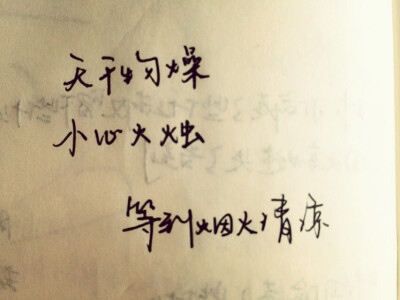 天干物燥
小心火烛
等到烟火清凉